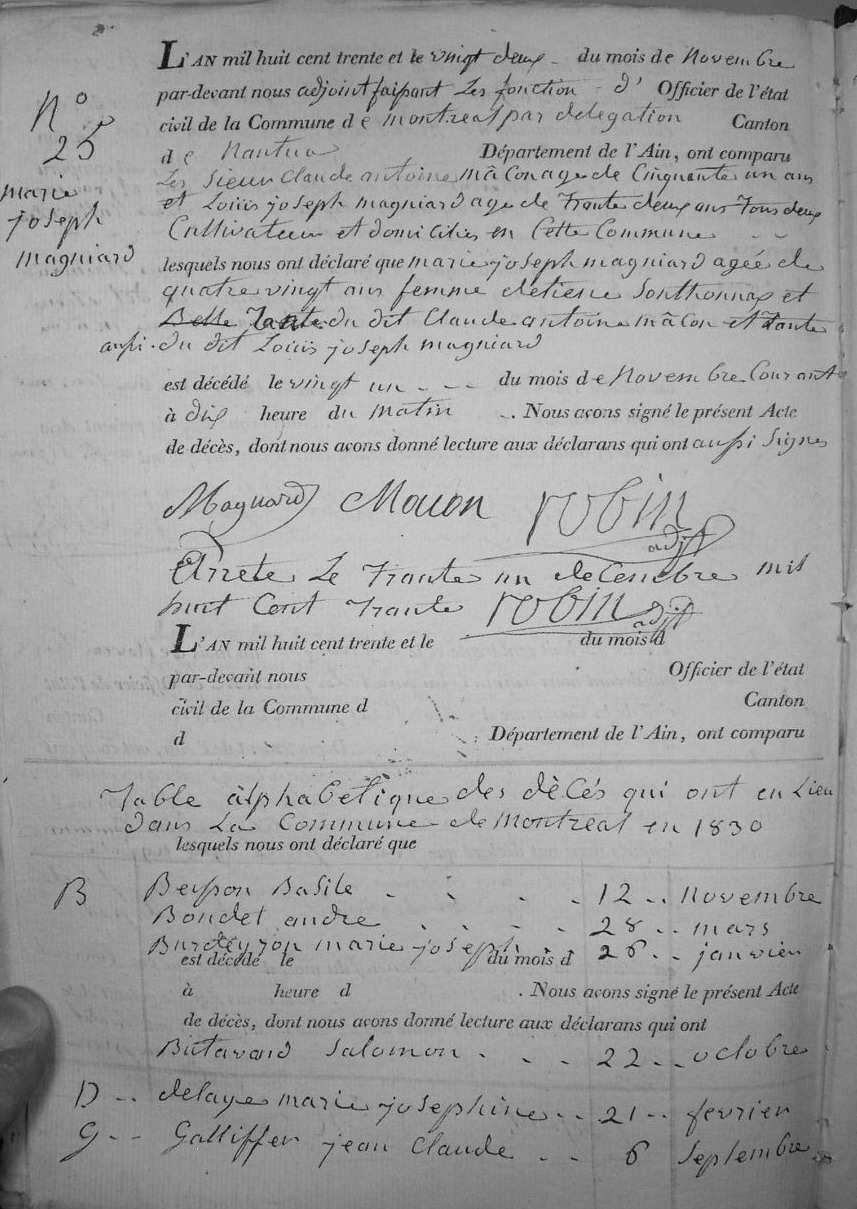 L'AN mil huit cent trente et le vingt deux du mois de Novembre
par-devant nous adjoint faisant Les fonction d' Officier de l'état
N° 25
civil de la Commune de montreal par delegation Canton
de Nantua Département de l'Ain, ont comparu
marie joseph magniard
Les Sieur Claude antoine mâcon age de Cinquante un ans
et Louis joseph magniard age de Trante deux ans Tous deux
Cultivateur et domicilies en Cette Commune
lesquels nous ont déclaré que marie joseph magniard agée de
quatre vingt ans femme detiene Sonthonnax et
Belle Tante du dit Claude antoine mâcon et Tante
aussi du dit Louis joseph magniard
est décédé le vingt un du mois de Novembre Courant
à dix heure du matin . Nous avons signé le présent Acte
de décès, dont nous avons donné lecture aux déclarans qui ont aussi Signes
Magniard Macon robin adjt
Arrete Le Trante un decembre mil
huit Cent Trante robin adjt
L'AN mil huit cent trente et le du mois d
par-devant nous Officier de l'état
civil de la Commune d Canton
d Département de l'Ain, ont comparu
Table alphabetique des dècés qui ont eu Lieu
dans La Commune de Montreal en 1830
lesquels nous ont déclaré que
B Beysson Basile 12 Novembre
Bondet andre 28 mars
Burdeyron marie joseph 26 janvier
est décédé le du mois d
à heure d . Nous avons signé le présent Acte
de décès, dont nous avons donné lecture aux déclarans qui ont
Butavand Salomon 22 octobre
D delaye marie josephine 21 fevrier
G Galliffer jean Claude 6 Septembre